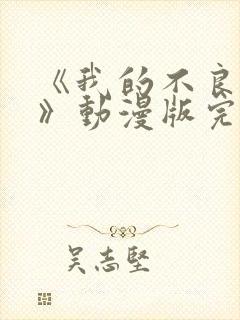 《我的不良
》動漫版完
吴志堅